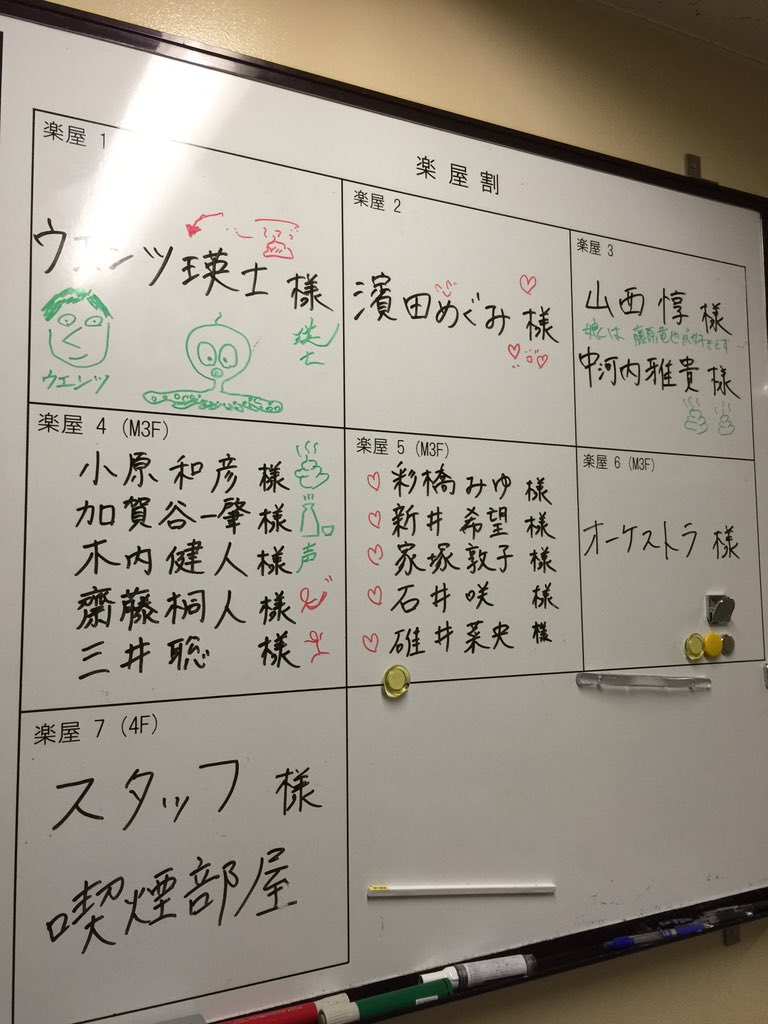 楽屋割
楽屋 1
ウエンツ瑛士 様
ウエンツ
瑛士
楽屋 2
濱田めぐみ 様
楽屋 3
山西 惇 様
僕は 藤原竜也が好きです
中河内雅貴 様
楽屋 4 (M3F)
小原 和彦 様
加賀谷一肇 様
木内 健人 様
声
齋藤桐人 様
三井 聡 様
楽屋 5 (M3F)
彩橋みゆ 様
新井 希望 様
家塚敦子 様
石井 咲 様
碓井菜央 様
楽屋 6 (M3F)
オーケストラ 様
楽屋 7 (4F)
スタッフ 様
喫煙部屋